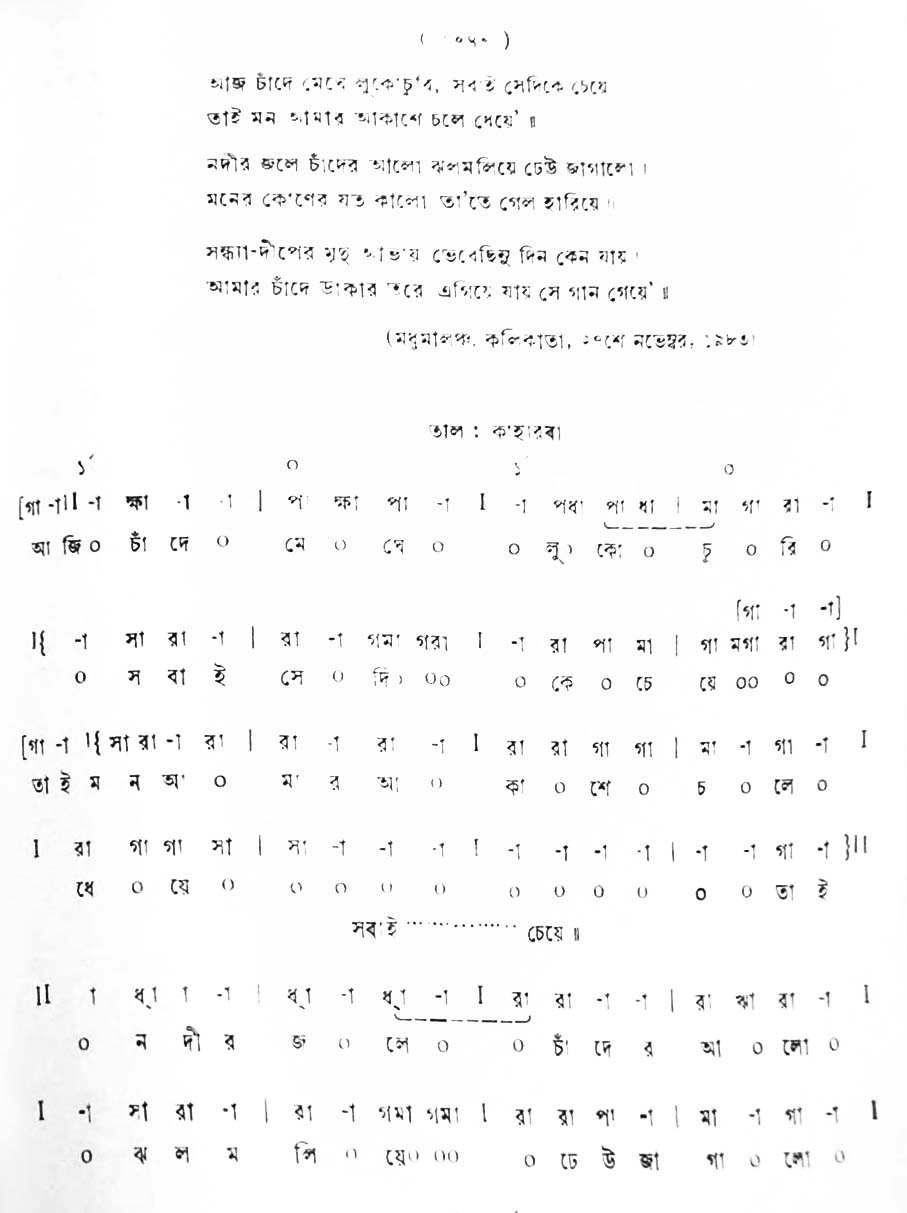 আজ চাঁদে মেঘে লুকোচুরি, সবাই সেদিকে চেয়ে
তাই মন আমার আকাশে চলে ধেয়ে' ॥
নদীর জলে চাঁদের আলো ঝলমলিয়ে ঢেউ জাগালো ।
মনের কোণের যত কালো তা'তে গেল হারিয়ে ॥
সন্ধ্যা-দীপের মৃদু আভায় ভেবেছিনু দিন কেন যায় ।
আমার চাঁদে ডাকার তরে এগিয়ে যায় সে গান গেয়ে' ॥
(মধুমালঞ্চ, কলিকাতা, ২০শে নভেম্বর, ১৯৮৩)
তাল : কাহারবা
১´ ০ ১´ ০
[গা -া]I -া ক্ষা -া -া | পা ক্ষা পা -া I -া পধা পা ধা | মা গা রা -া I
আ জি ০ চাঁ দে ০ মে ০ ঘে ০ ০ লু০ কো ০ চু ০ রি ০
[গা -া -া]
I{ -া সা রা -া | রা -া গমা গরা I -া রা পা মা | গা মগা রা গা }I
০ স বা ই সে ০ দি০ ০০ ০ কে ০ চে য়ে ০০ ০ ০
[গা -া I{ সা রা -া রা | রা -া রা -া I রা রা গা গা | মা -া গা -া I
তা ই ম ন আ ০ মা র আ ০ কা ০ শে ০ চ ০ লে ০
I রা গা গা সা | সা -া -া -া I -া -া -া -া | -া -া গা -া }II
ধে ০ য়ে ০ ০ ০ ০ ০ ০ ০ ০ ০ ০ ০ তা ই
সবাই ................ চেয়ে ॥
II া ধ্া া -া | ধ্া -া ধ্া -া I রা রা -া -া | রা ঋা রা -া I
০ ন দী র জ ০ লে ০ ০ চাঁ দে র আ ০ লো ০
I -া সা রা -া | রা -া গমা গমা I রা রা পা -া | মা -া গা -া I
০ ঝ ল ম লি ০ য়ে০ ০০ ০ ঢে উ জা গা ০ লো ০